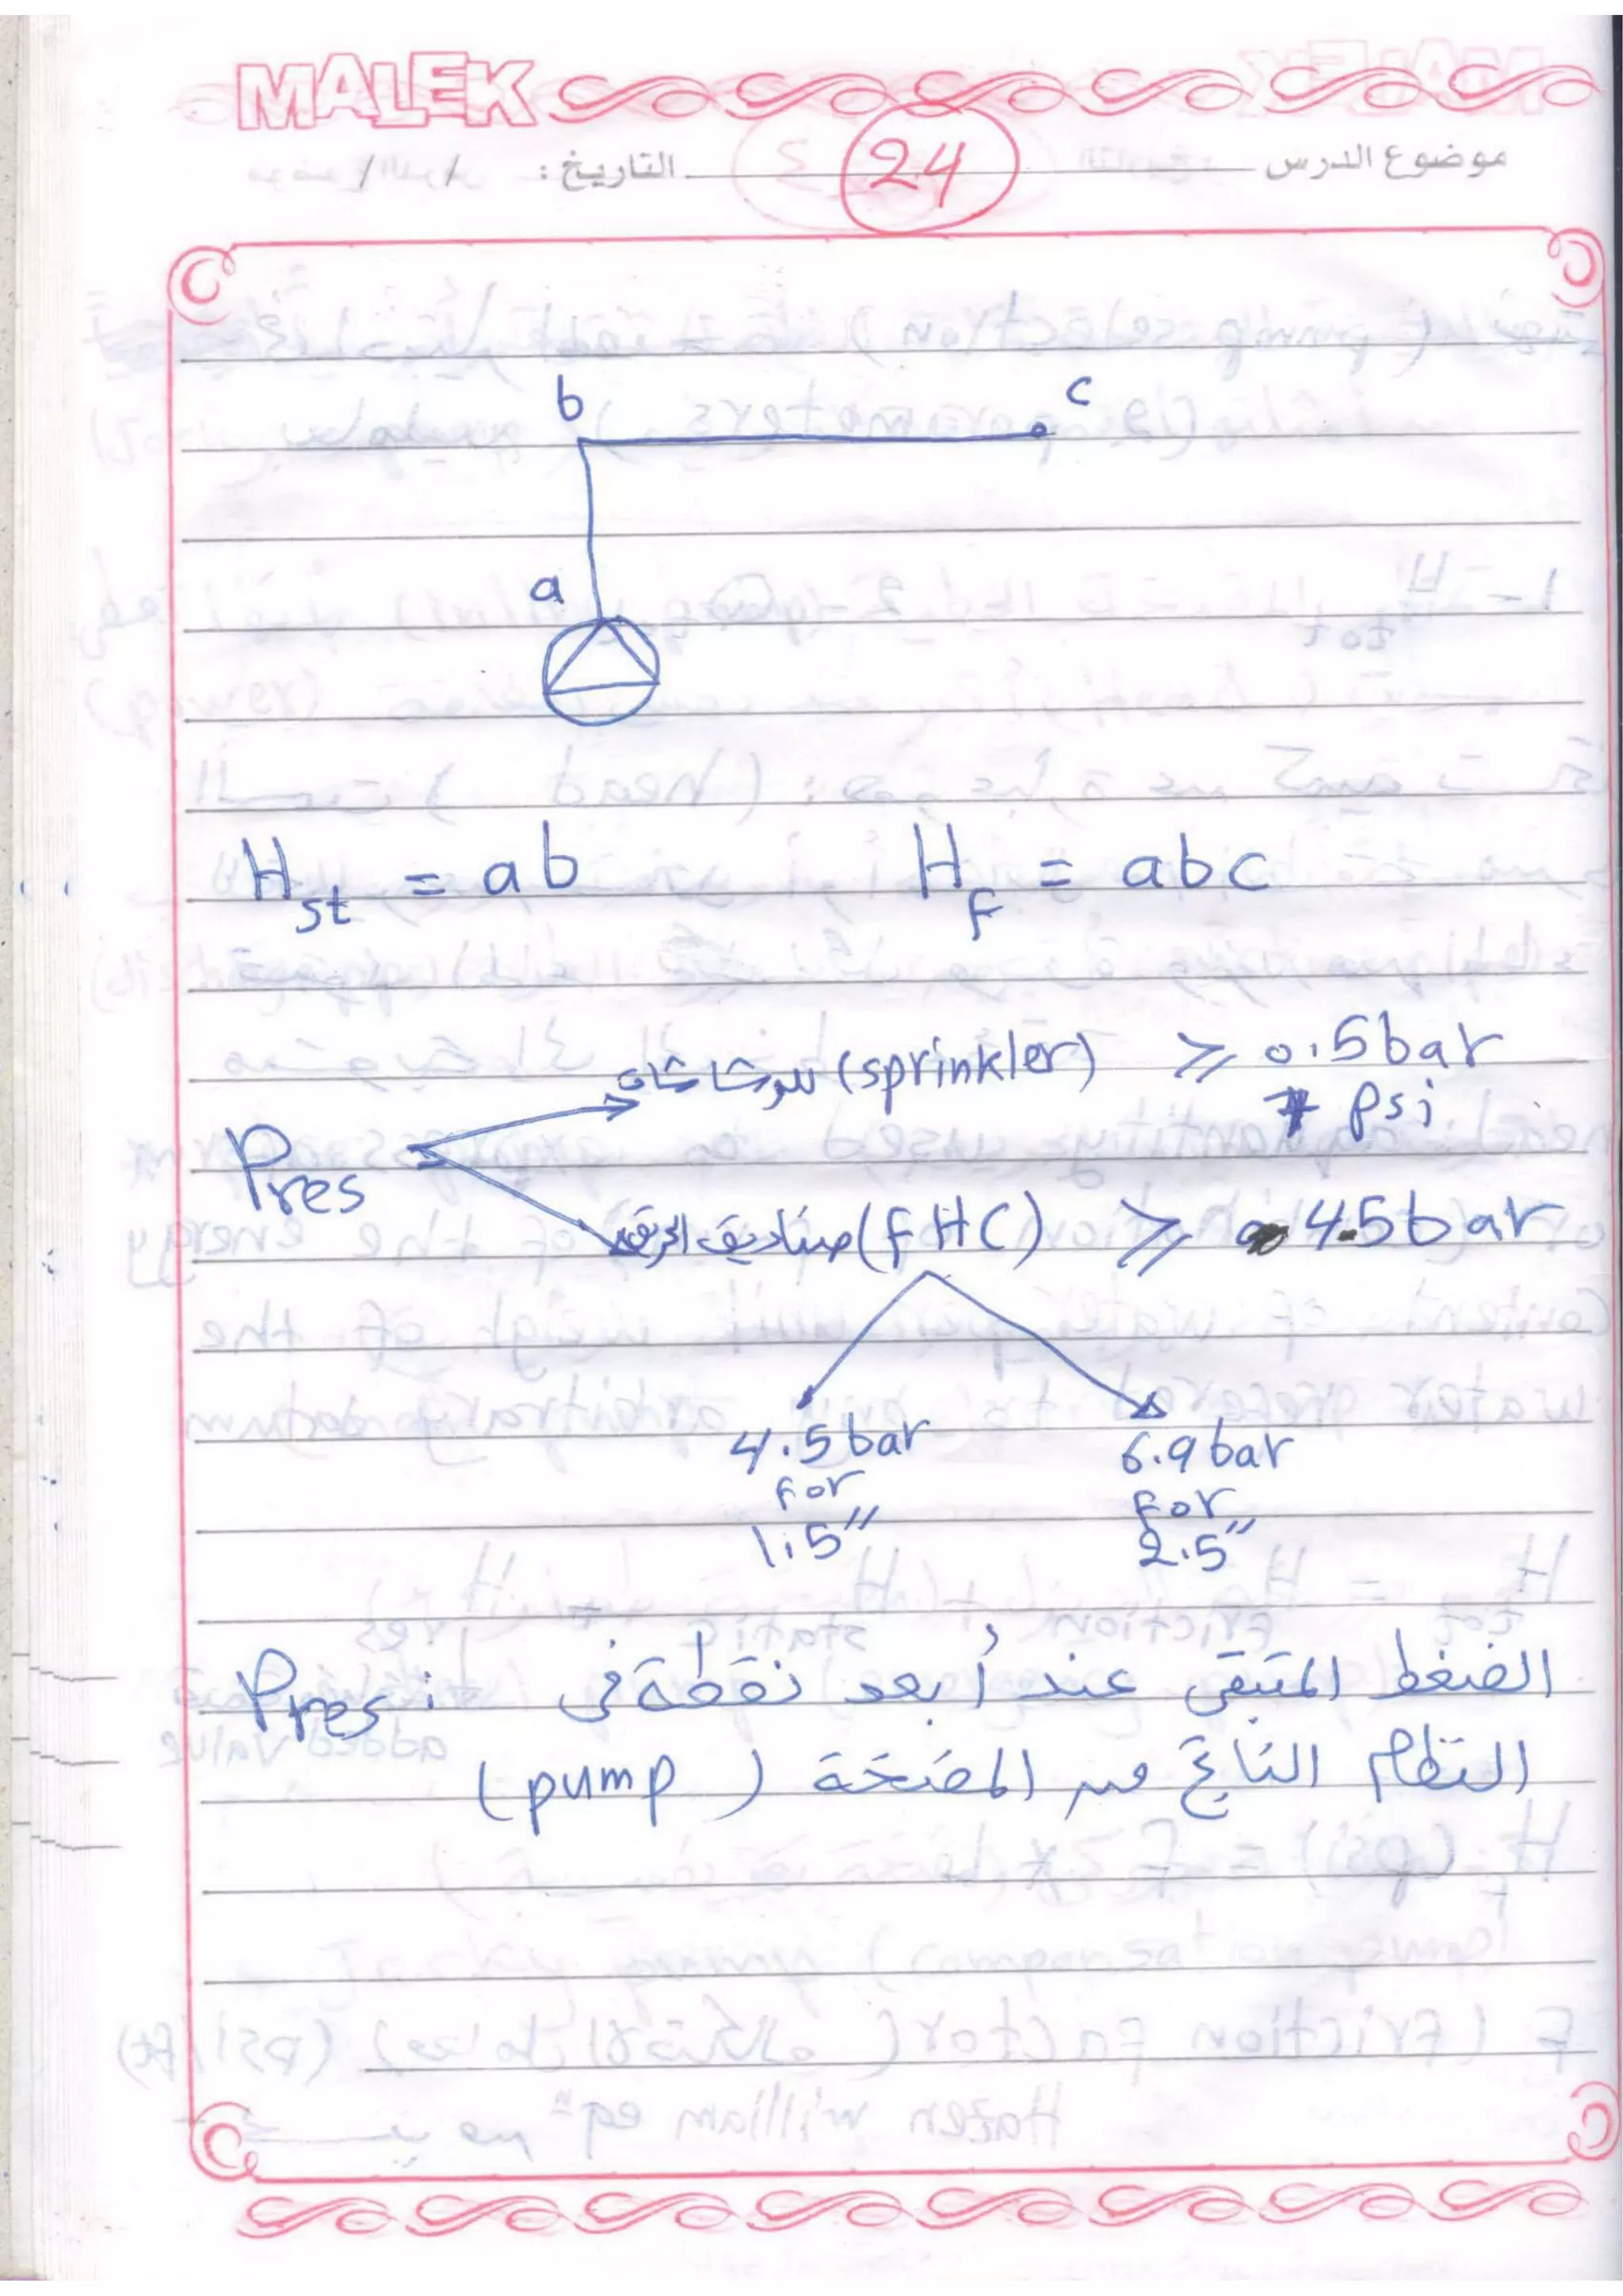 MALEK
موضوع الدرس 24 التاريخ: / /
b c
a
H st = ab H f = abc
للرشاشات (sprinkler) ⩾ 0.5 bar
7 psi
Pres
صناديق الحريق (FHC) ⩾ 4.5 bar
4.5 bar 6.9 bar
for for
1.5" 2.5"
Pres: الضغط المتبقى عند أبعد نقطة فى
النظام الناتج من المضخة (pump)